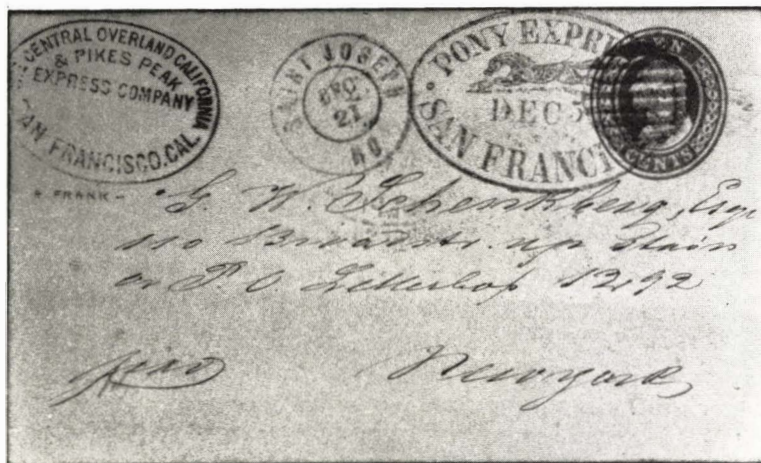 CENTRAL OVERLAND CALIFORNIA
& PIKES PEAK
EXPRESS COMPANY
AN FRANCISCO.CAL.
FRANK
SAINT JOSEPH
DEC
21
MO
PONY EXPRE
DEC 5
SAN FRANCI
N
CENTS
G. W. Schenkberg, Esqr
110 Broadstr. up stairs
or P. O. Letterbox 1292
Newyork